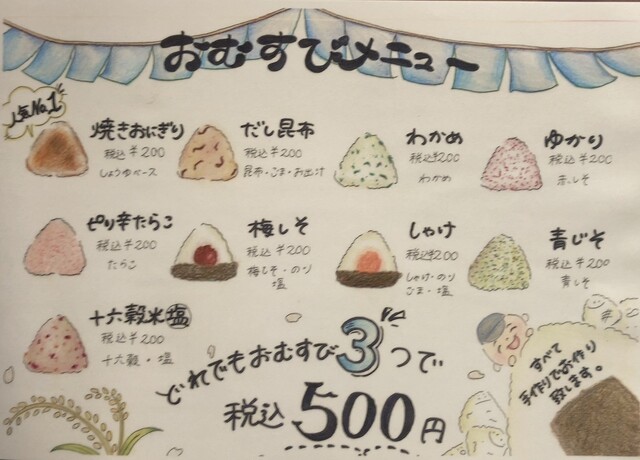 おむすびメニュー
人気No.1
焼きおにぎり
税込¥200
しょうゆベース
だし昆布
税込¥200
昆布・ごま・お出汁
わかめ
税込¥200
わかめ
ゆかり
税込¥200
赤しそ
ピリ辛たらこ
税込¥200
たらこ
梅しそ
税込¥200
梅しそ・のり
塩
しゃけ
税込¥200
しゃけ・のり
ごま・塩
青じそ
税込¥200
青しそ
十六穀米塩
税込¥200
十六穀・塩
どれでもおむすび3つで
税込500円
すべて
手作りでお作り
致します。